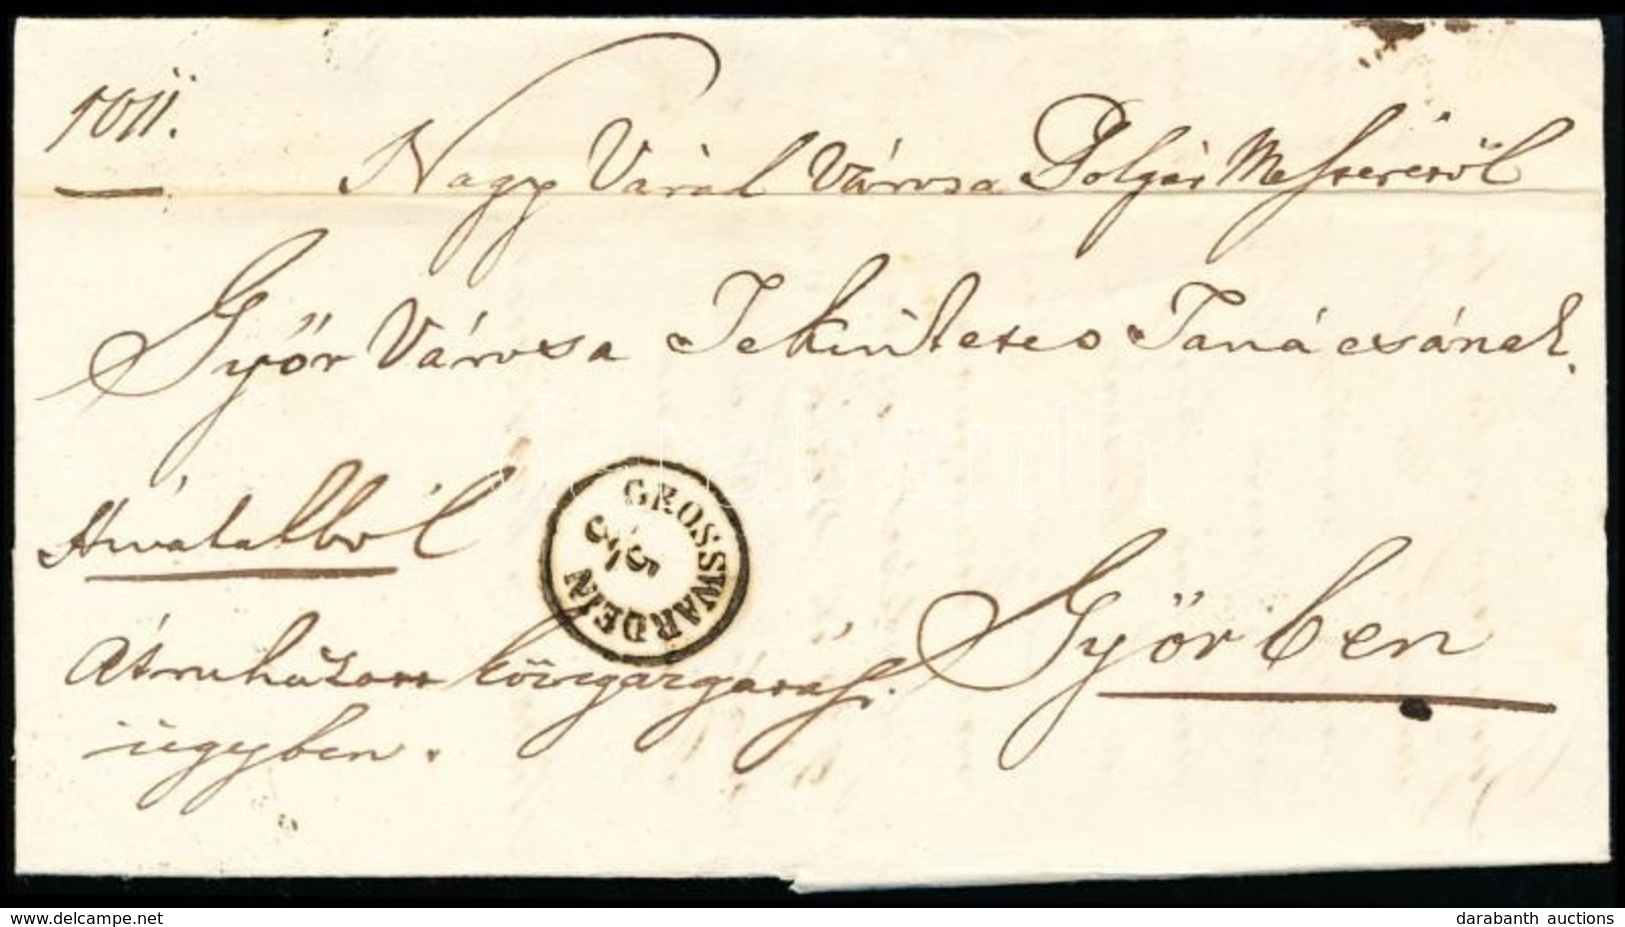 1011.
Nagy Várad Városa Polgár Mesterétöl
Győr Városa Tekintetes Tanácsának.
Hivatalból
GROSSWARDEIN
5/9
Győrben
Átruházott közigazgatási
ügyben.
darabanth
www.delcampe.net
darabanth auctions